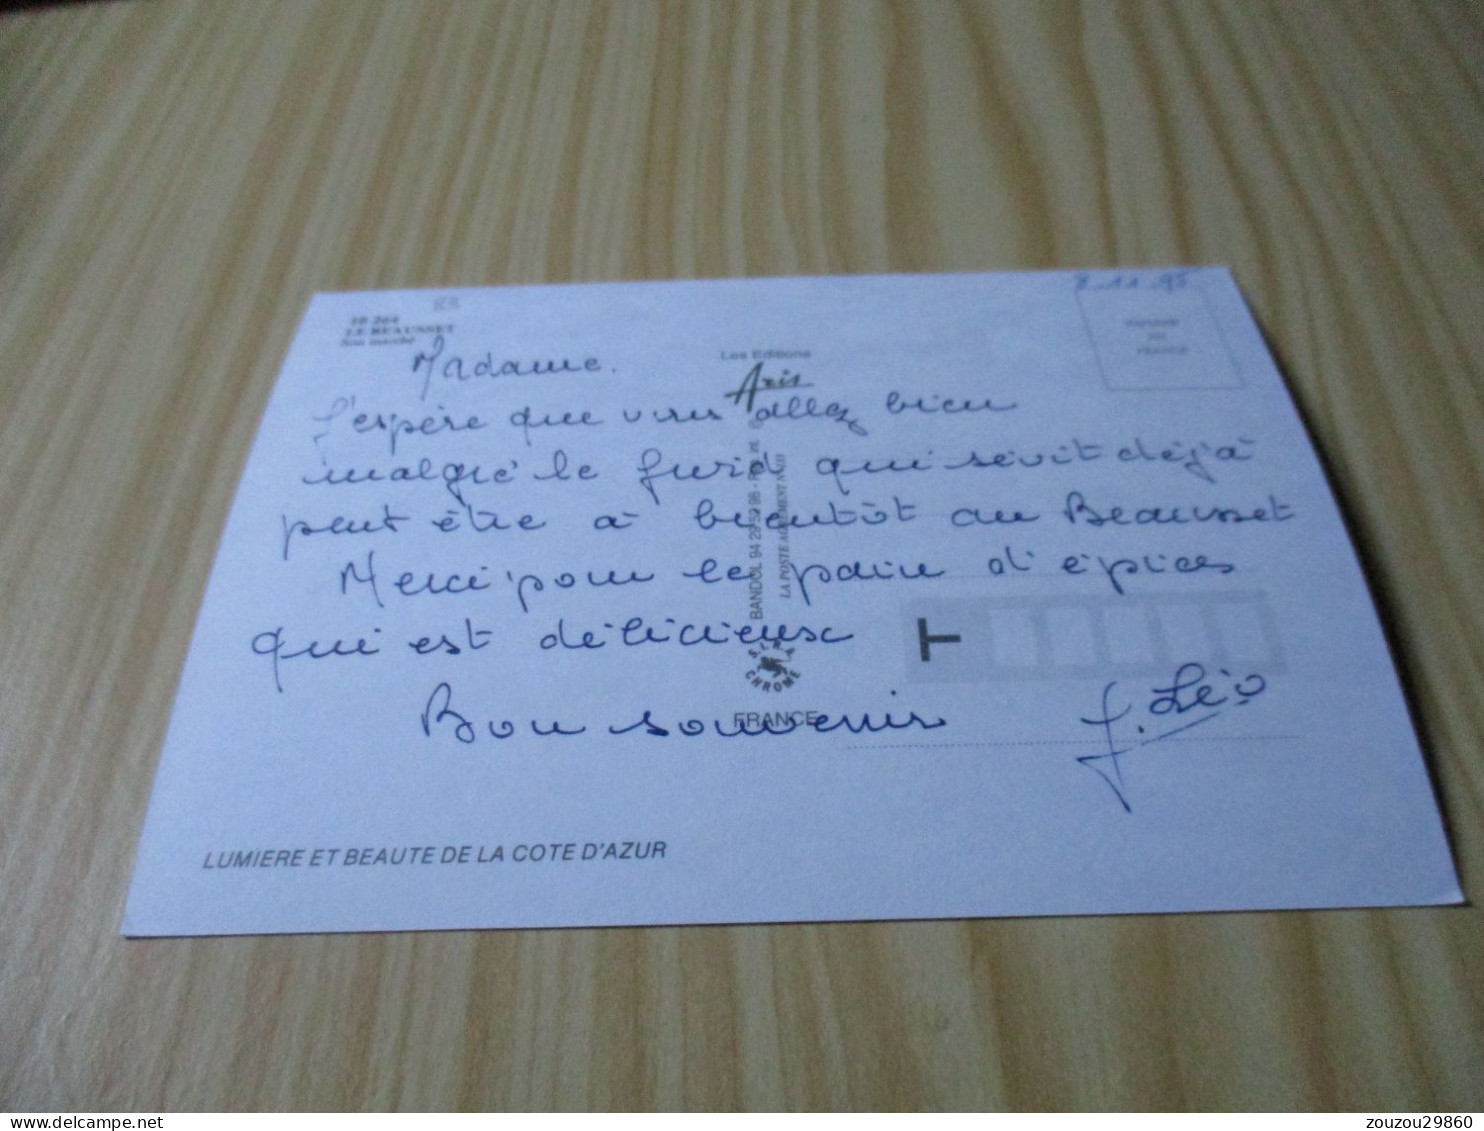 83
10-264
LE BEAUSSET
Son marché
8.11.95
Madame.
J'espère que vous allez bien
malgré le froid qui sévit déjà
peut être à bientôt au Beausset
Merci pour le pain d'épices
qui est délicieuse
Bon souvenir
J. Léo
Les Editions
Aris
BANDOL 94 29 59 98 - Rep. int. ©
LA POSTE AGREMENT N°
T
CHROME
FRANCE
LUMIERE ET BEAUTE DE LA COTE D'AZUR
zouzou29860